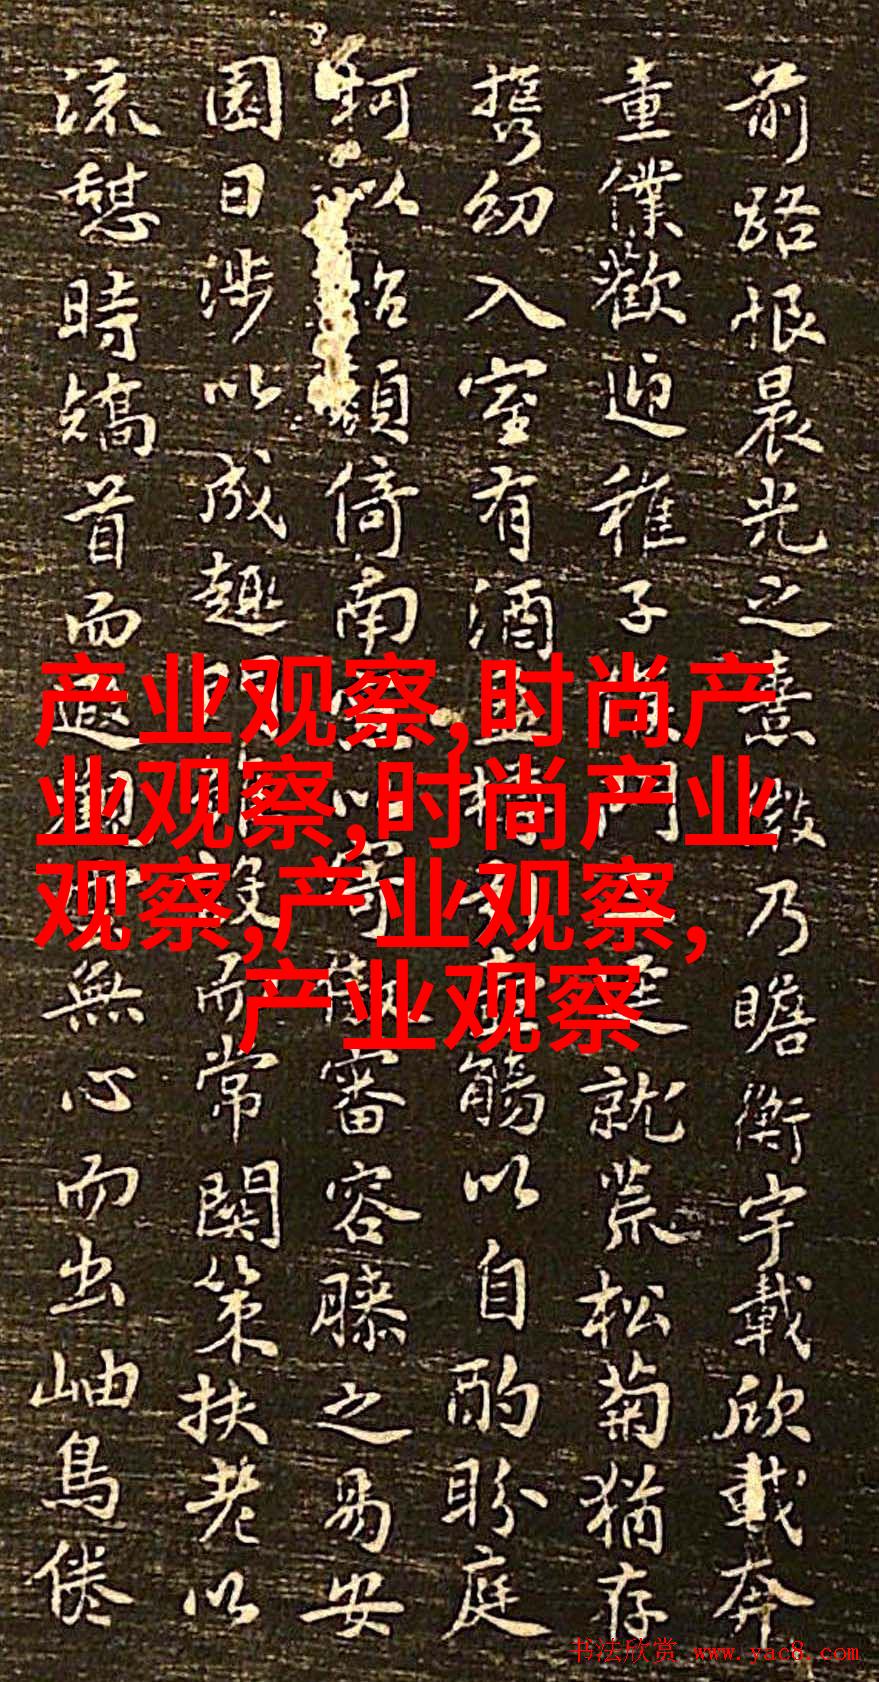 前路恨晨光之熹微乃瞻衡宇載欣載奔
童僕歡迎稚子門逕就荒松菊猶存
携幼入室有酒盈樽觴以自酌眄庭
柯以怡顏倚南以寄審容膝之易安
園日涉以成趣門設而常關策扶老以
流憩時矯首而遐觀無心而出岫鳥倦
产业观察,时尚产
业观察,时尚产业
观察,产业观察,
产业观察
书法欣赏 www.yac8.com